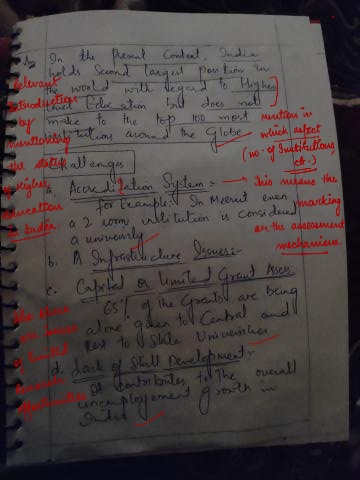 Ans In the Present Context, India
holds Second largest position in
the world with regard to Higher
Education but does not
make to the top 100 most
institutions around the Globe
Relevant
Introduction
by
mentioning
the status
of Higher
education
in India
mention in
which aspect
(no. of Institutions
etc.)
Challenges
a. Accreditation System:-
For Example: In Meerut even
a 2 room institution is considered
a university
This means the
marking
on the assessment
mechanism.
b. A Infrastructure Issues:-
c. Capital or Limited Grant Asses
65% of the Grants are being
alone given to Central and
Rest to State Universities
Also there
are issues
of limited
opportunities
d. Lack of Skill Development:-
It contributes to the overall
unemployement growth in
India